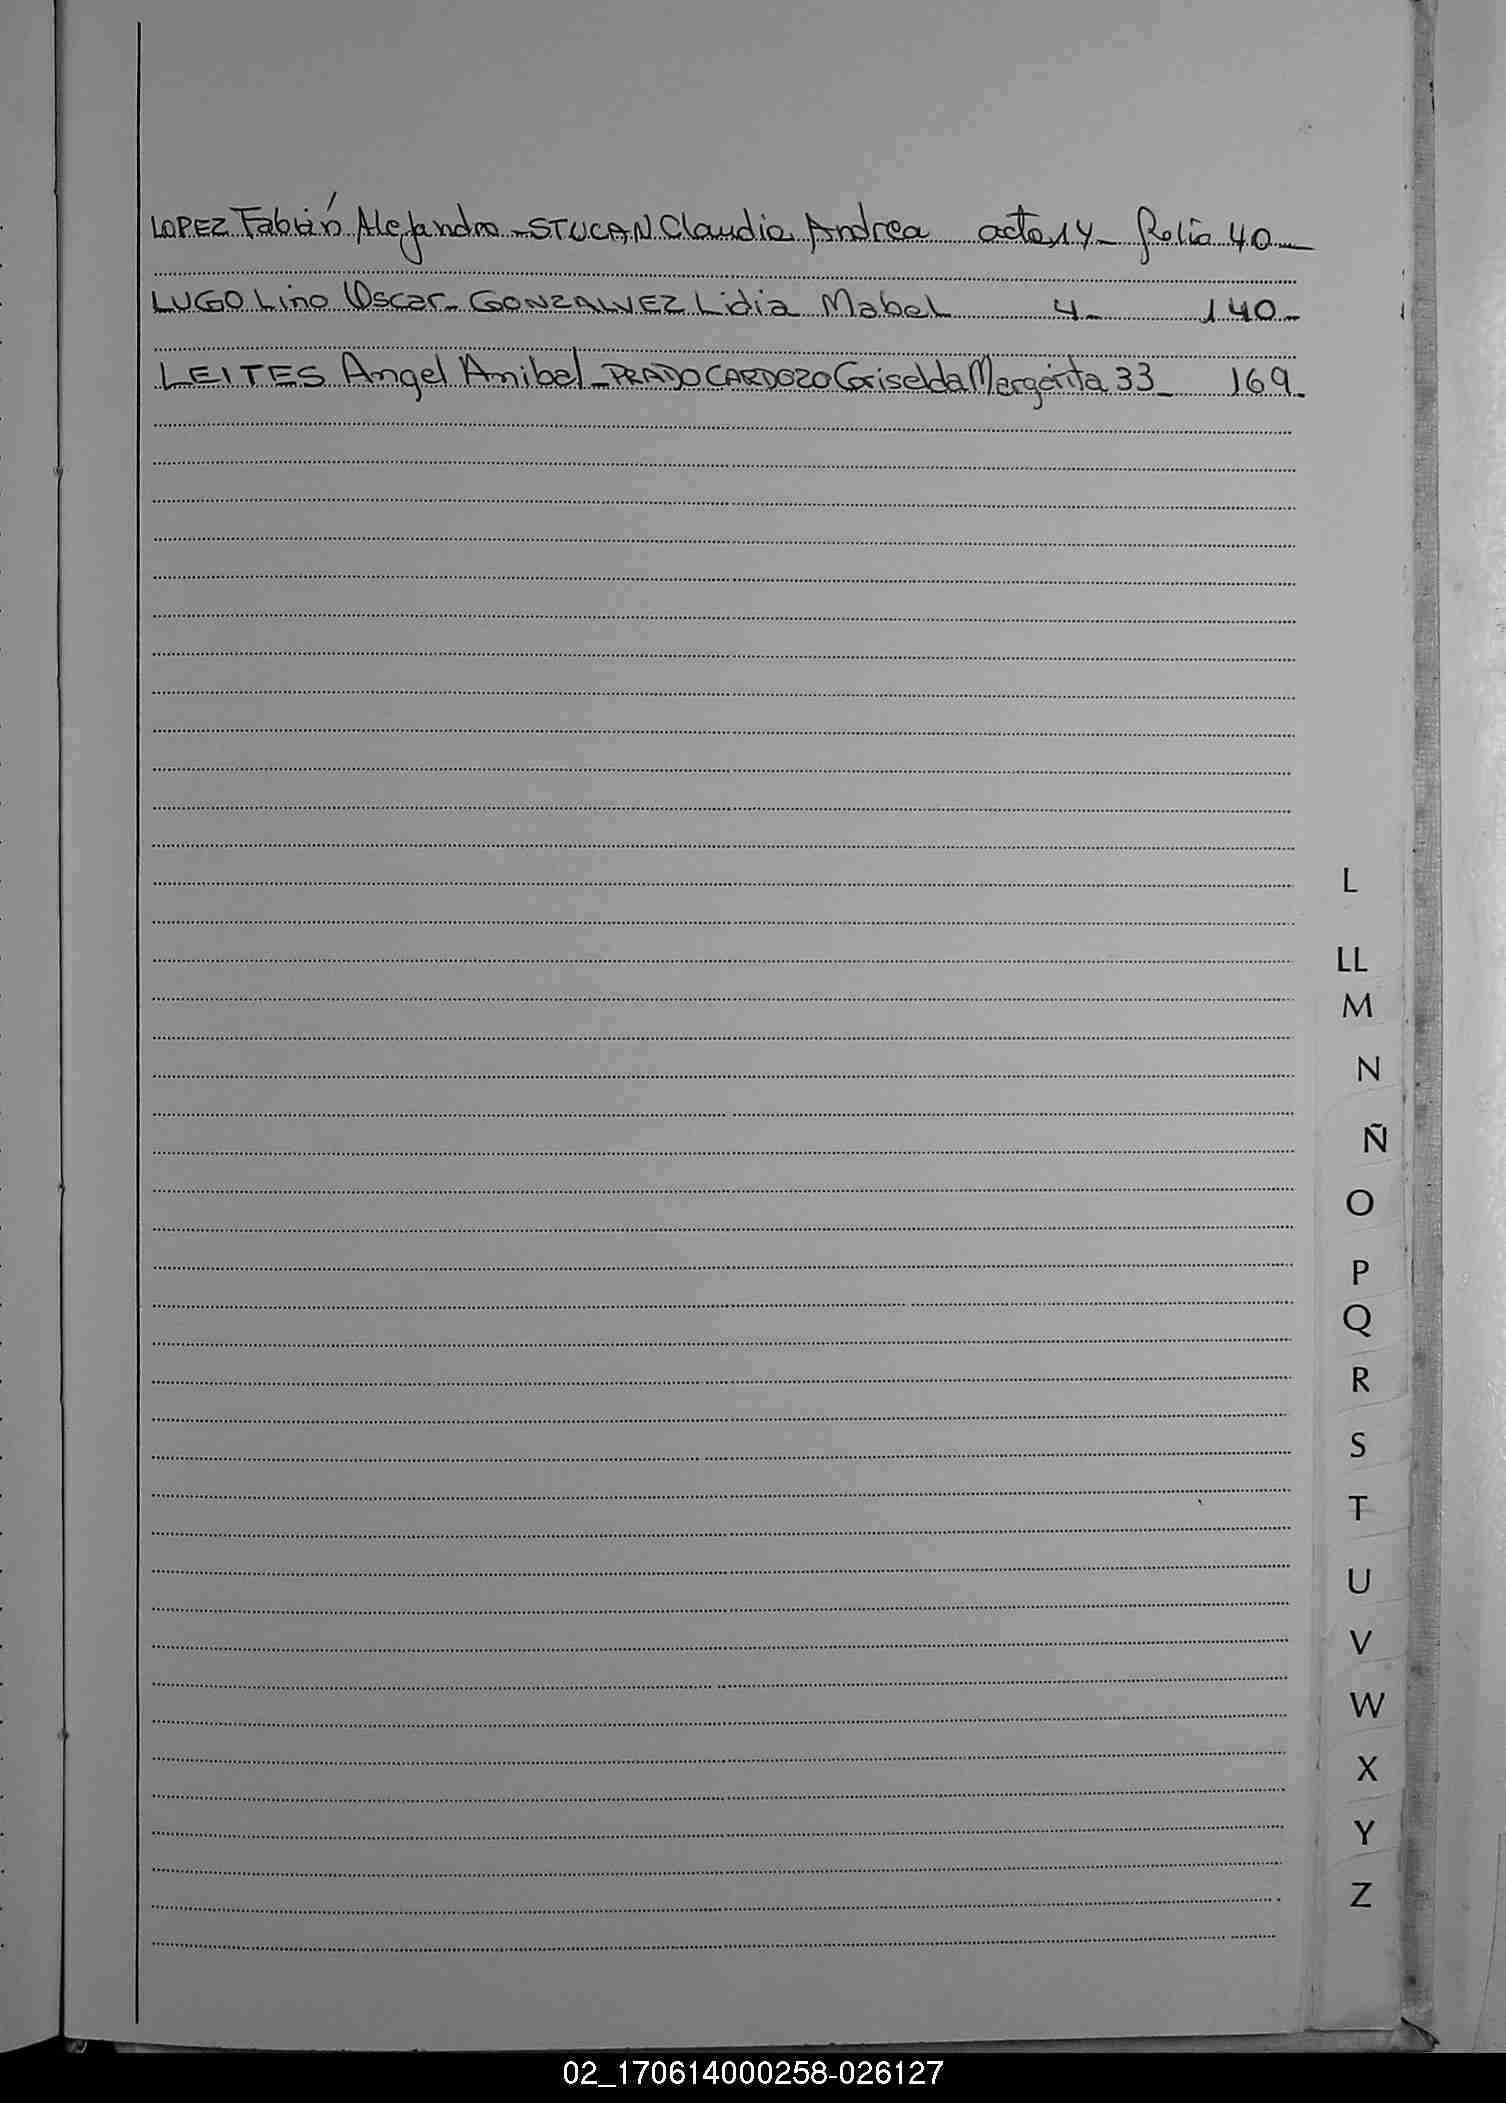 LOPEZ Fabián Alejandro - STUCAN Claudia Andrea acta 14 - folio 40 -
LUGO Lino Oscar - GONZALVEZ Lidia Mabel 4 - 140 -
LEITES Angel Anibal - PRADO CARDOZO Griselda Margarita 33 - 169 -
L
LL
M
N
Ñ
O
P
Q
R
S
T
U
V
W
X
Y
Z
02_170614000258-026127